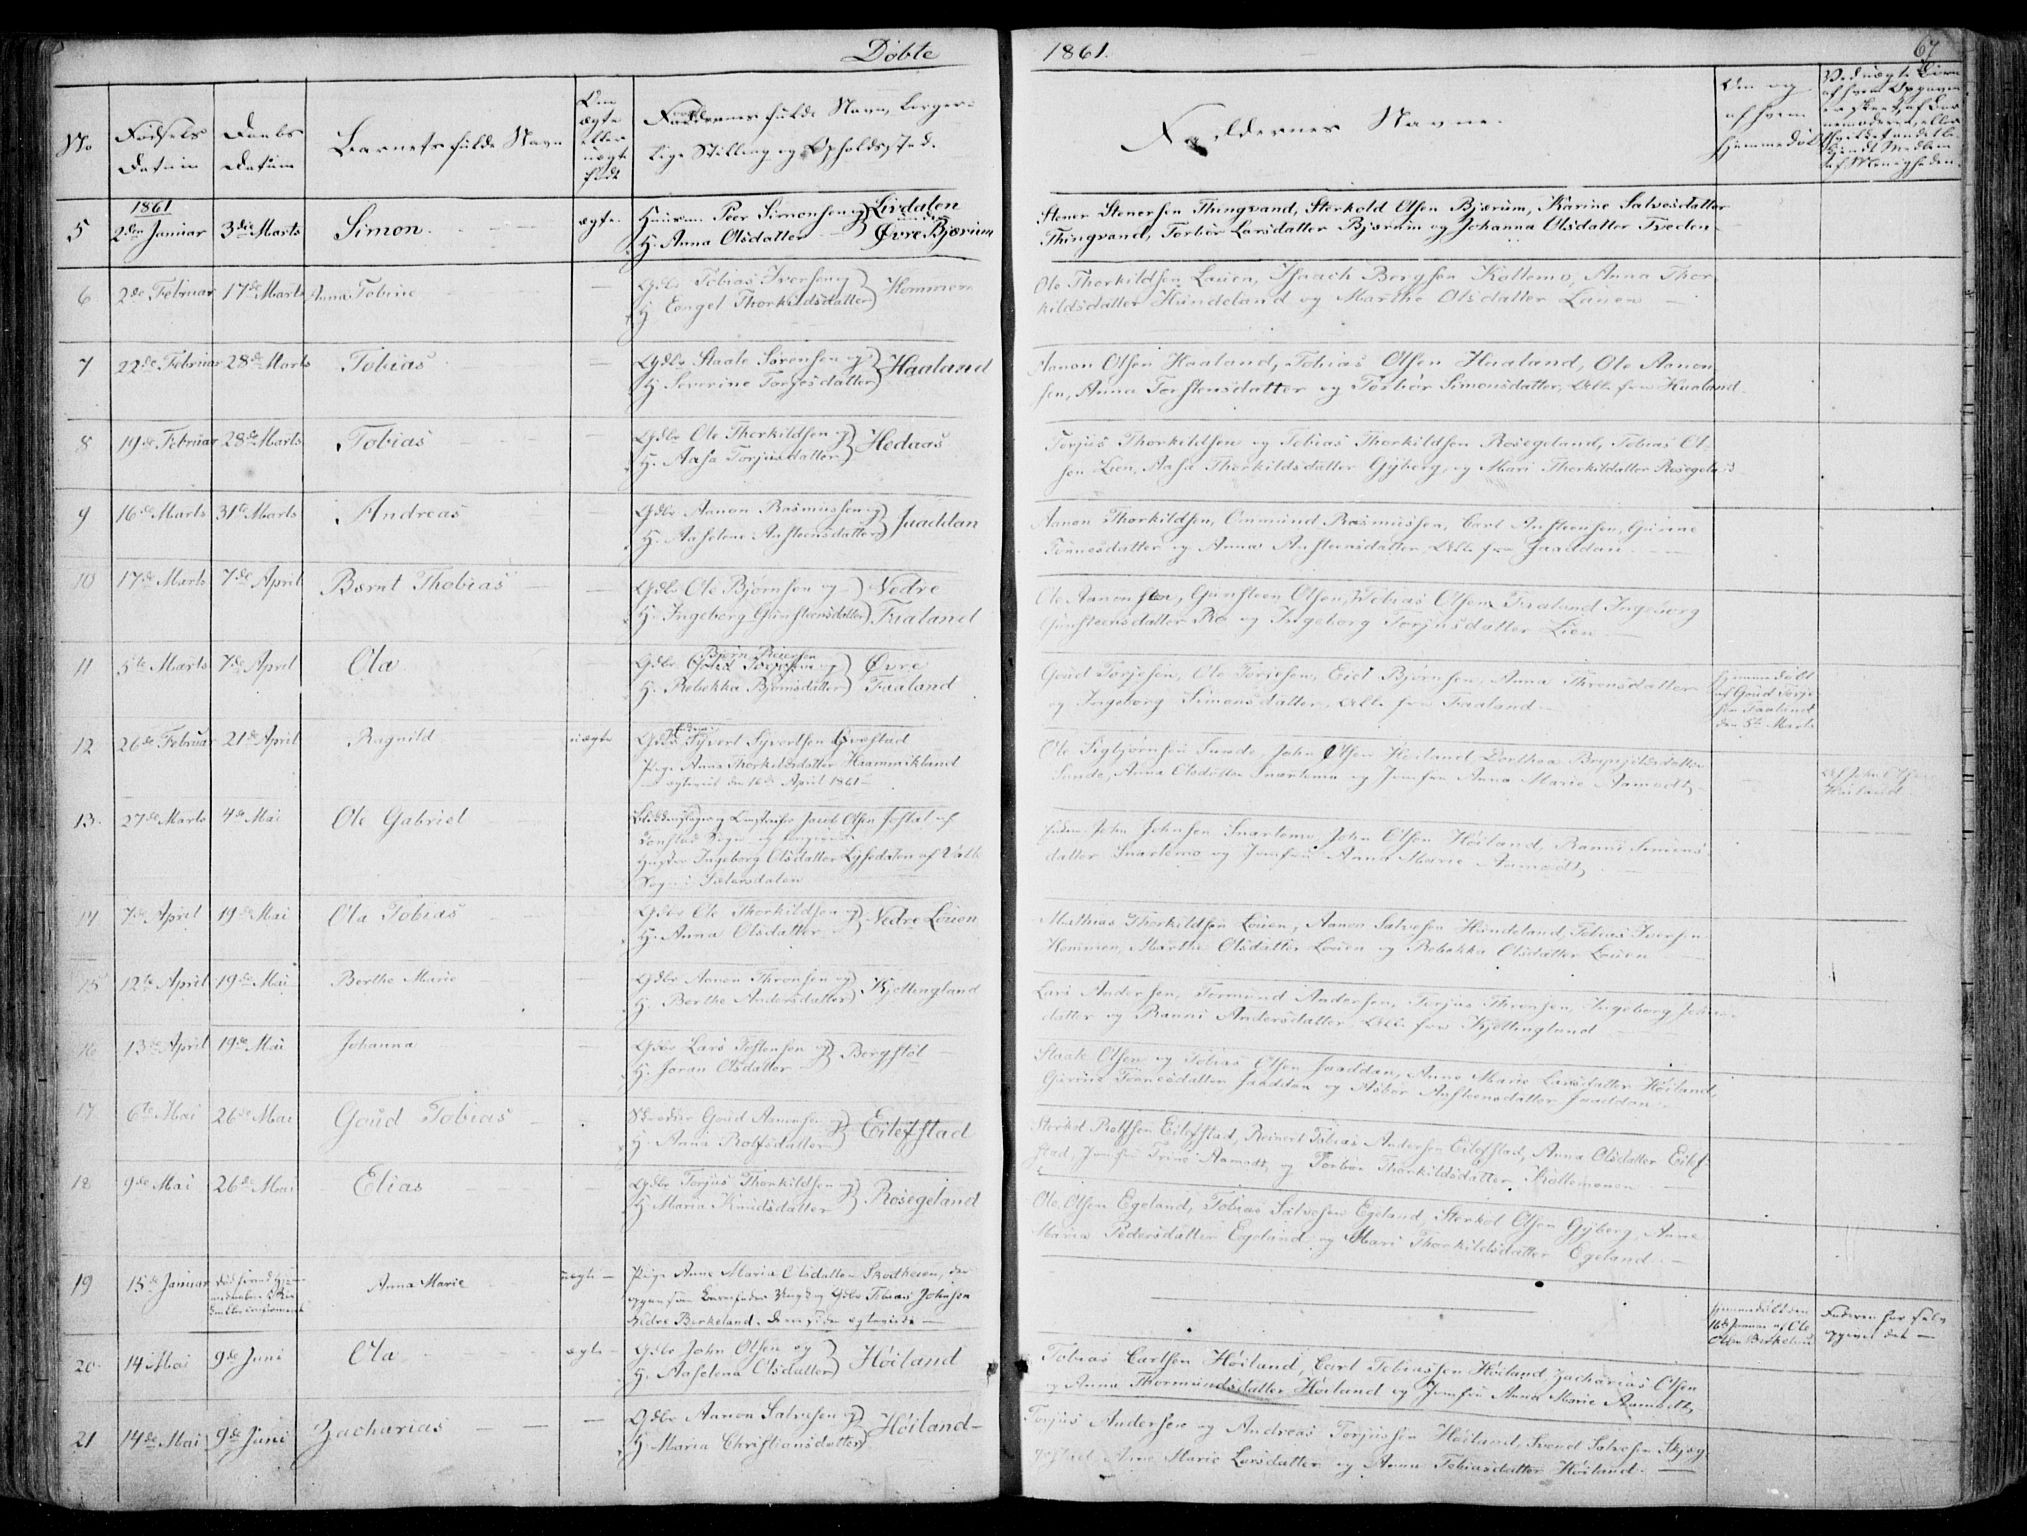 Døbte
1861.
67
No
Fødsels Datum
Daabs Datum
Barnets fulde Navn
Om ægte eller uægte født
Forældrenes fulde Navn, borgerlige Stilling og Opholdssted.
Faddernes Navne.
Om og af hvem hjemmedøbt
1861
5 2den Januar 3die Marts Simon ægte
Huusm. Peer Simonsen og
H. Anna Olsdatter
Livdalen under
Øvre Bjærum
Stener Stenersen Thingvand, Sterkold Olsen Bjærum, Karine Salvesdatter
Thingvand, Torbør Larsdatter Bjærum og Johanna Olsdatter Tveden
6 2de Februar 17de Marts Anna Tobine
Gdbr Tobias Iversen og
H. Eenget Thorkildsdatter
Hommen
Ole Thorkildsen Lauen, Isaach Bergsen Kollemo, Anna Thor-
kildsdatter Hundeland og Marthe Olsdatter Lauen
7 22de Februar 28de Marts Tobias
Gdbr Staale Sørensen og
H. Severine Torjesdatter
Haaland
Aanon Olsen Haaland, Tobias Olsen Haaland, Ole Aanon-
sen, Anna Torstensdatter og Torbør Simonsdatter, Alle fra Haaland.
8 19de Februar 28de Marts Tobias
Gdbr Ole Thorkildsen og
H. Aasa Torjusdatter
Hedaas
Torjus Thorkildsen og Tobias Thorkildsen Rosegeland, Tobias Ol-
sen Lien, Aasa Thorkildsdatter Gyberg og Mari Thorkildatter Rosegeland
9 16de Marts 31te Marts Andreas
Gdbr Aanon Rasmussen og
H. Aaselene Ansteensdatter
Jaaddan
Aanon Thorkildsen, Ommund Rasmussen, Carl Ansteensen, Gurine
Tønnesdatter og Anna Ansteensdatter, Alle fra Jaaddan
10 17de Marts 7de April Bernt Thobias
Gdbr Ole Bjørnsen og
H. Ingeborg Gunsteensdatter
Nedre
Faaland
Ole Aanonsen, Gunsteen Olsen, Tobias Olsen Faaland Ingeborg
Gunsteensdatter Ro og Ingeborg Torjusdatter Lien
11 5te Marts 7de April Ola
Bjørn Peersen
Gdbr og
H. Rebekka Bjørnsdatter
Øvre
Faaland
Goud Torjesen, Ole Torjesen, Eid Bjørnsen, Anna Thronsdatter
og Ingeborg Simonsdatter, Alle fra Faaland
hjemmedøbt
af Goud Torje-
sen Faaland
den 5te Marts
12 26de Februar 21de April Ragnild uægte
Syvert Syvertsen
Pige Anna Thorkildsdatter Haammikland
ægteviet den 16de April 1861
Ole Sigbjørnsen Sunde, John Olsen Høiland Dorthea Brynjildsdatter
Sunde, Anna Olsdatter Snartemo og Jomfru Anna Marie Aamodt
Af John Olsen
Høiland
13. 27de Marts 4de Mai Ole Gabriel
Jacob Olsen
Ingeborg Olsdatter Lysedalen af Valle
Sogn i Sætersdalen
John Johnsen Snartemo, John Olsen Høiland, Ranni Simons-
datter Snartemo og Jomfru Anna Marie Aamodt
14 7de April 19de Mai Ola Tobias
Gdbr Ole Thorkildsen og
H. Anna Olsdatter
Nedre Louen
Mathias Thorkildsen Louen, Aanon Salvesen Hundeland, Tobias Iversen
Hommen, Marthe Olsdatter Louen og Rebekka Olsdatter Louen
15 12te April 19de Mai Berthe Marie
Gdbr Aanon Thronsen og
H. Berthe Andersdatter
Kjellingland
Lars Andersen, Tormund Andersen, Torjus Thronsen, Ingeborg
datter og Ranni Andersdatter Alle fra Kjellingland
16 13de April 19de Mai Johanna
Gdbr Lars Tostensen og
H. Joran Olsdatter
Bergstøl
Staale Olsen og Tobias Olsen Jaaddan, Anne Marie Larsdatter Høiland,
Gurine Tønnesdatter Jaaddan og Asbør Ansteensdatter Jaaddan
17 6te Mai 26de Mai Goud Tobias
Goud Aanensen
H. Anna Rolfsdatter
Eilefstad
Sterkol Rolfsen Eilefstad, Reinert Tobias Andersen Eilefstad, Anna Olsdatter Eilef-
stad, Jomfru Trine Aamodt og Torbør Thorkildsdatter Kollemonen
18 9de Mai 26de Mai Elias
Gdbr Torjus Thorkildsen og
H. Maria Knudsdatter
Rosegeland
Ole Olsen Egeland, Tobias Salvesen Egeland, Sterkol Olsen Gyberg, Anne
Maria Pedersdatter Egeland og Mari Thorkildsdatter Egeland
19 15de Januar Anna Marie uægte
Pige Anne Maria Olsdatter Skodheien, der
Tobias Johnsen
Nedre Birkeland.
hjemmedøbt den
16de Januar af Ole
Olsen Birkeland
Faderen har selv
opgivet det
20 14 Mai 9de Juni Ola ægte
Gdbr John Olsen og
H. Aaselena Olsdatter
Høiland
Tobias Carlsen Høiland, Carl Tobiassen Høiland, Zacharias Olsen
og Anna Thormundsdatter Høiland og Jomfru Anna Marie Aamodt
21 14de Mai 9de Juni Zacharias
Gdbr Aanon Salvesen og
H. Maria Christiansdatter
Høiland
Torjus Andersen og Andreas Torjussen Høiland, Svend Salvesen Skjeg-
Anne Marie Larsdatter og Anna Tobiasdatter Høiland.